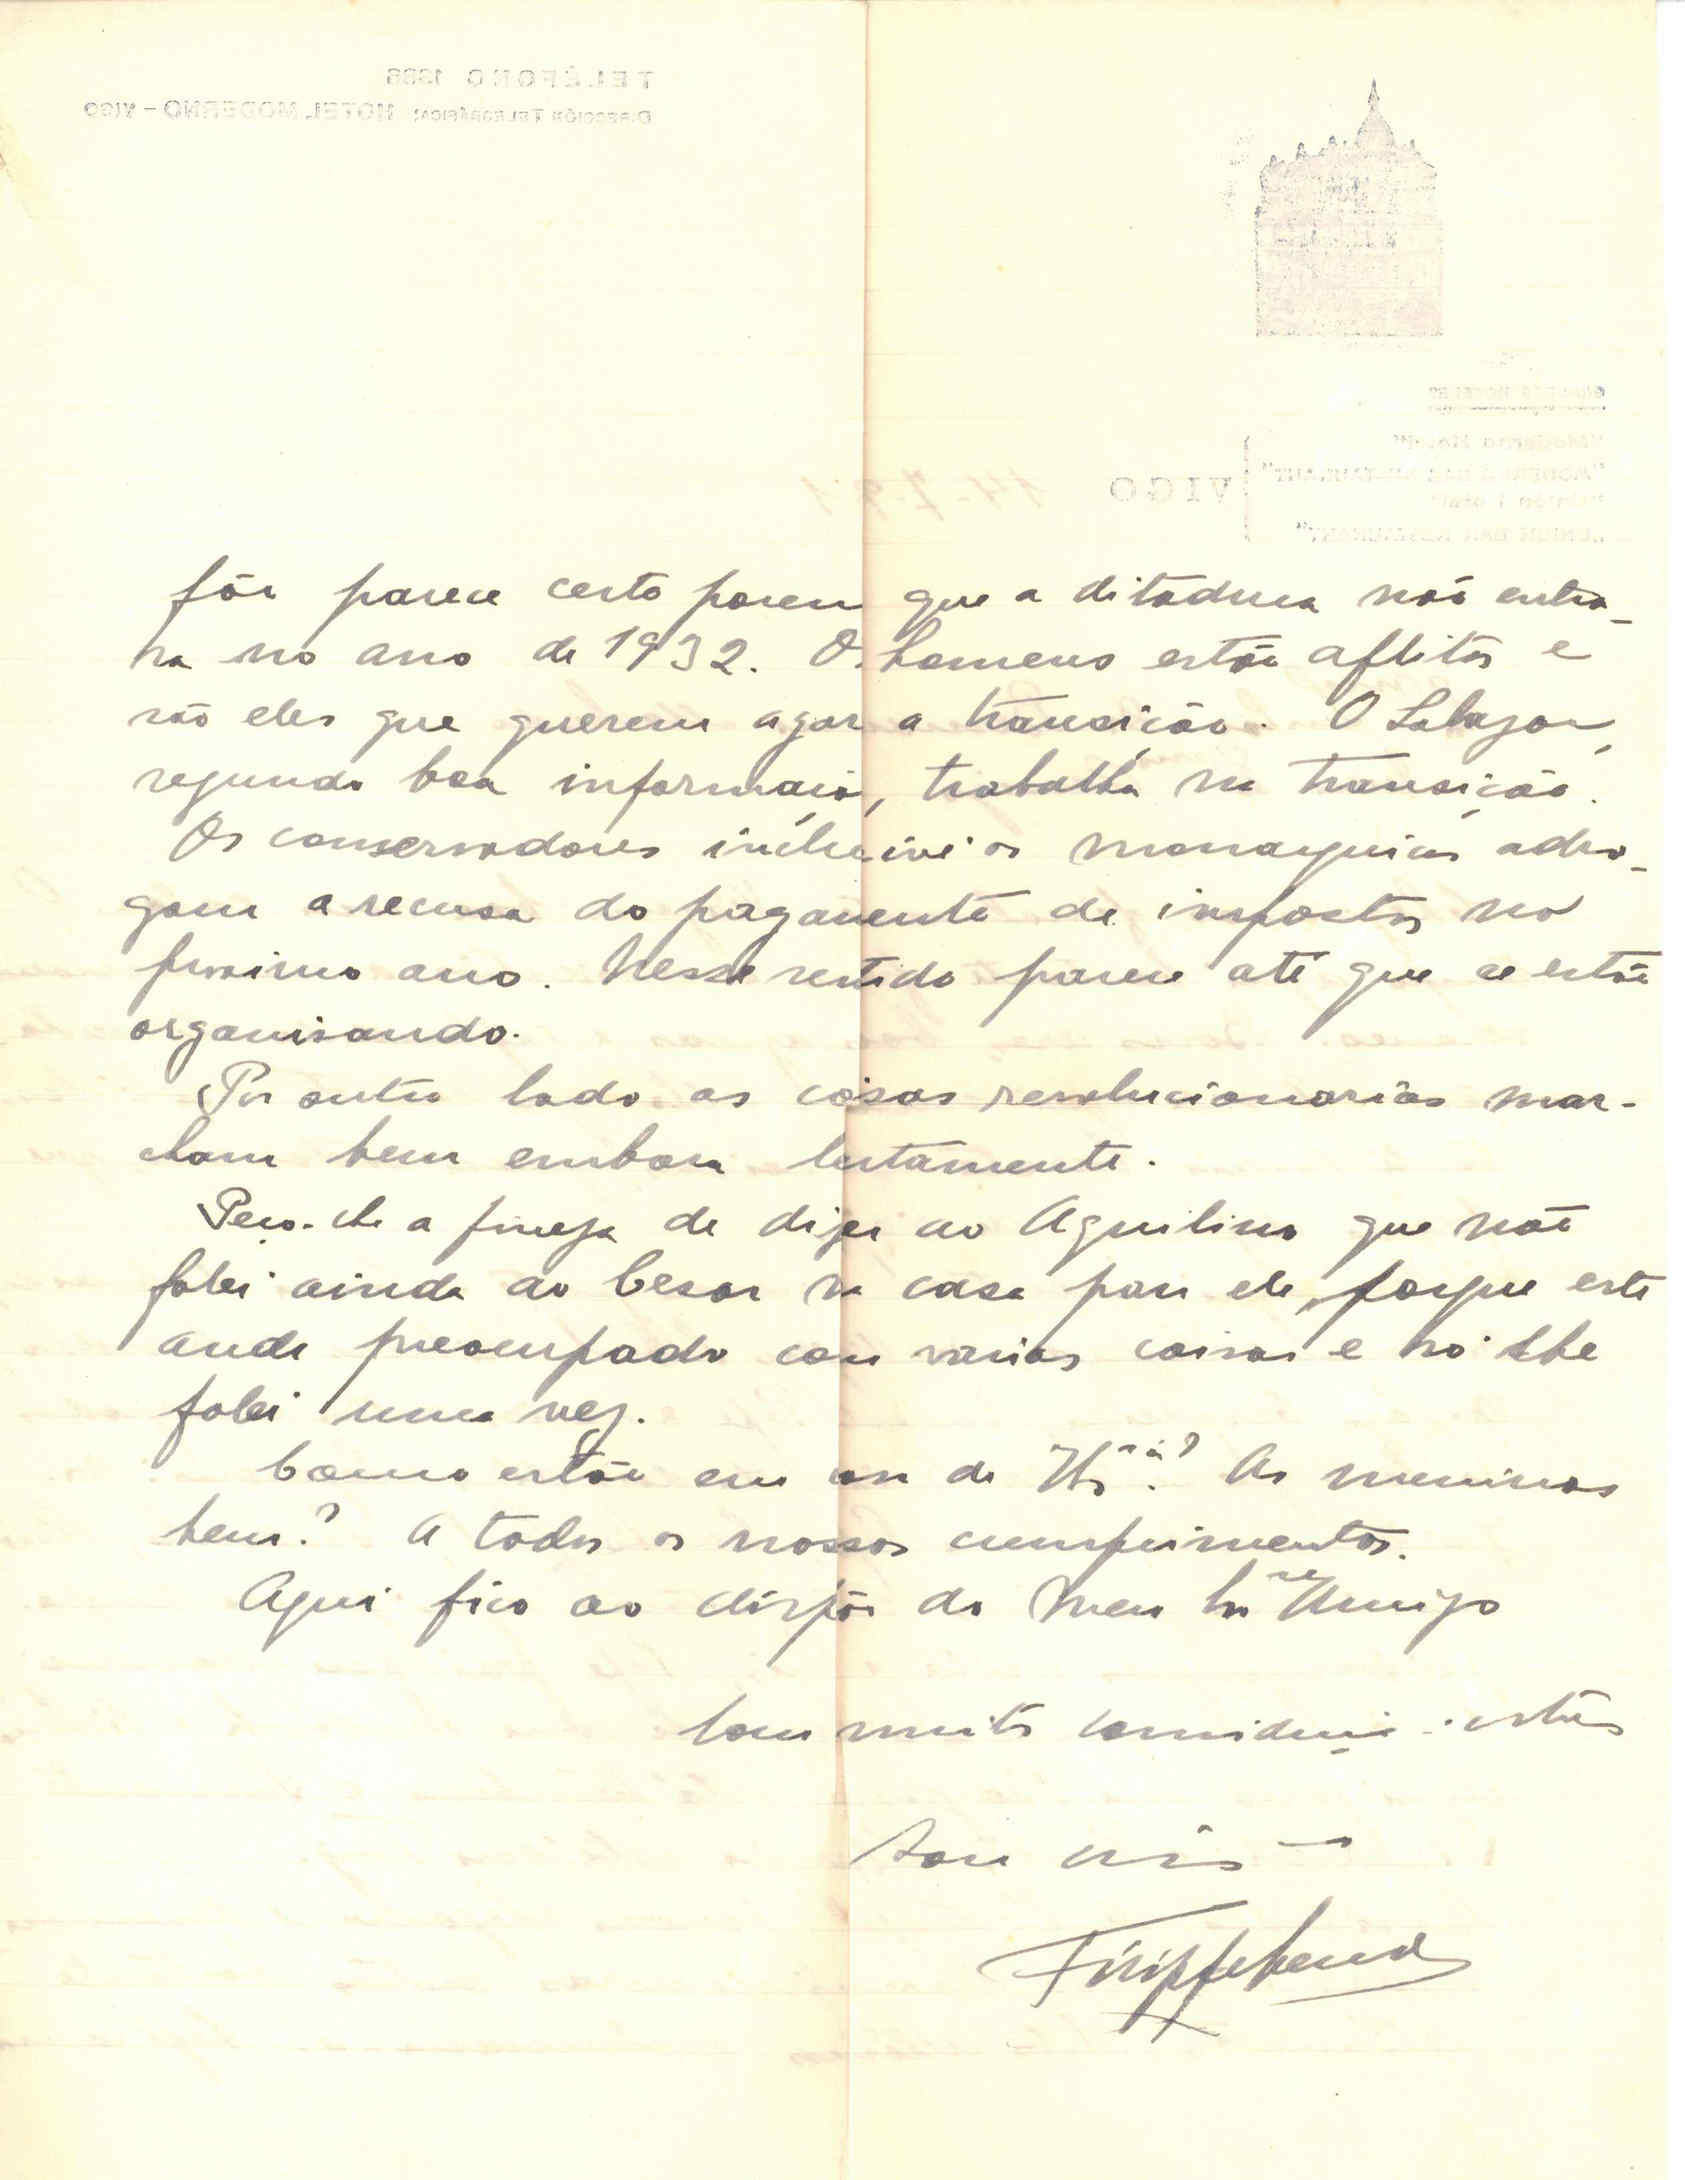 fôr parece certo porem que a ditadura não entra-
ra no ano de 1932. Os homens estão aflitos e
são eles que querem agora a transição. O Salazar,
segundo boa informação, trabalha na transição.
Os conservadores inclusivé os monarquicos advo-
gam a recusa do pagamento de impostos no
proximo ano. Nesse sentido parece até que se estão
organisando.
Por outro lado as coisas revolucionarias mar-
cham bem embora lentamente.
Peço-lhe a fineza de dizer ao Aquilino que não
falei ainda ao Cesar na casa para ele, porque este
anda preocupado com varias coisas e só lhe
falei uma vez.
Como estão em casa de V. As meninas
bem? A todos os nossos cumprimentos.
Aqui fico ao dispôr do Meu Amigo
Com muita consideração
Sou
TELÉFONO 1386
DIRECCIÓN TELEGRÁFICA: HOTEL MODERNO - VIGO
VIGO